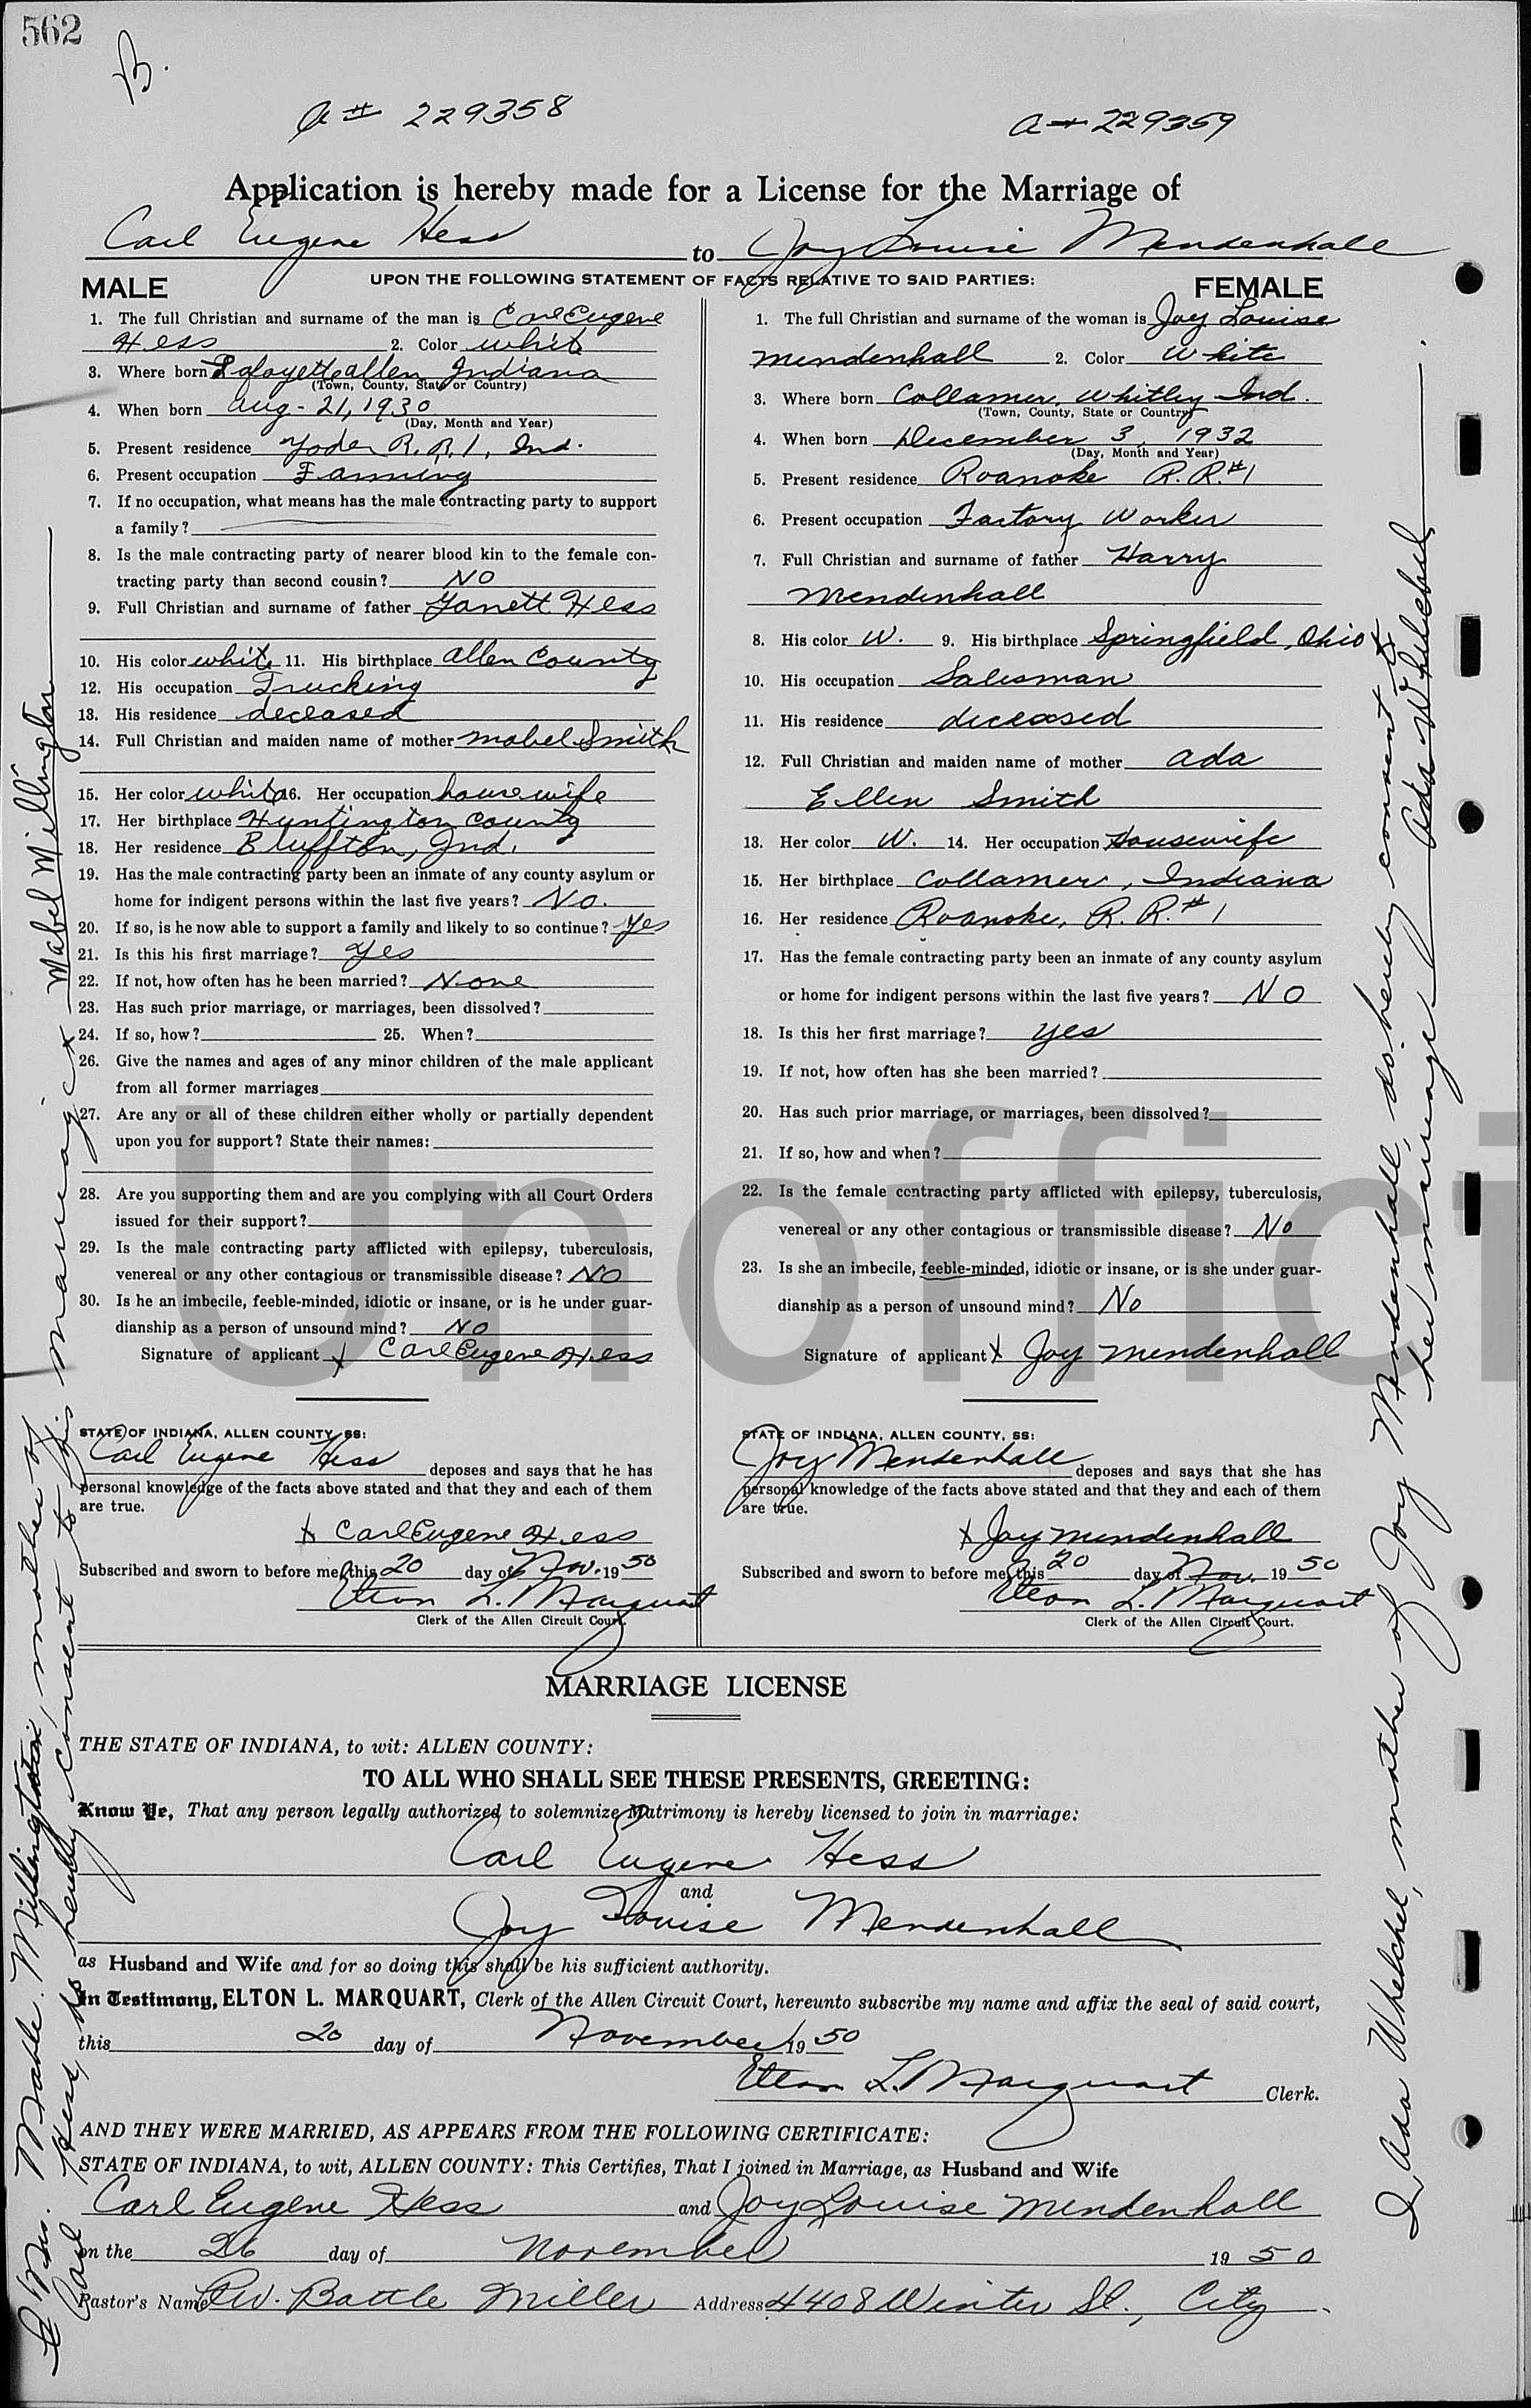 562
B.
a# 229358
a# 229359
Application is hereby made for a License for the Marriage of
Carl Eugene Hess to Joy Louise Mendenhall
UPON THE FOLLOWING STATEMENT OF FACTS RELATIVE TO SAID PARTIES:
MALE
1. The full Christian and surname of the man is Carl Eugene
Hess 2. Color white
3. Where born Lafayette allen Indiana
(Town, County, State or Country)
4. When born Aug - 21, 1930
(Day, Month and Year)
5. Present residence Yoder R.R.1, Ind.
6. Present occupation Farming
7. If no occupation, what means has the male contracting party to support
a family?
8. Is the male contracting party of nearer blood kin to the female con-
tracting party than second cousin? NO
9. Full Christian and surname of father Hess
10. His color white 11. His birthplace allen County
12. His occupation Trucking
13. His residence deceased
14. Full Christian and maiden name of mother Mabel Smith
15. Her color white 16. Her occupation housewife
17. Her birthplace Huntington County
18. Her residence Bluffton, Ind.
19. Has the male contracting party been an inmate of any county asylum or
home for indigent persons within the last five years? No.
20. If so, is he now able to support a family and likely to so continue? Yes
21. Is this his first marriage? Yes
22. If not, how often has he been married? None
23. Has such prior marriage, or marriages, been dissolved?
24. If so, how? 25. When?
26. Give the names and ages of any minor children of the male applicant
from all former marriages
27. Are any or all of these children either wholly or partially dependent
upon you for support? State their names:
28. Are you supporting them and are you complying with all Court Orders
issued for their support?
29. Is the male contracting party afflicted with epilepsy, tuberculosis,
venereal or any other contagious or transmissible disease? NO
30. Is he an imbecile, feeble-minded, idiotic or insane, or is he under guar-
dianship as a person of unsound mind? NO
Signature of applicant x Carl Eugene Hess
STATE OF INDIANA, ALLEN COUNTY, SS:
Carl Eugene Hess deposes and says that he has
personal knowledge of the facts above stated and that they and each of them
are true.
x Carl Eugene Hess
Subscribed and sworn to before me, this 20 day of Nov. 19 50
Elton L. Marquart
Clerk of the Allen Circuit Court.
FEMALE
1. The full Christian and surname of the woman is Joy Louise
Mendenhall 2. Color White
3. Where born Collamer, Whitley Ind.
(Town, County, State or Country)
4. When born December 3, 1932
(Day, Month and Year)
5. Present residence Roanoke R.R.#1
6. Present occupation Factory Worker
7. Full Christian and surname of father Harry
Mendenhall
8. His color W. 9. His birthplace Springfield, Ohio
10. His occupation Salesman
11. His residence deceased
12. Full Christian and maiden name of mother Ada
Ellen Smith
13. Her color W. 14. Her occupation Housewife
15. Her birthplace Collamer, Indiana
16. Her residence Roanoke, R. R. #1
17. Has the female contracting party been an inmate of any county asylum
or home for indigent persons within the last five years? NO
18. Is this her first marriage? yes
19. If not, how often has she been married?
20. Has such prior marriage, or marriages, been dissolved?
21. If so, how and when?
22. Is the female contracting party afflicted with epilepsy, tuberculosis,
venereal or any other contagious or transmissible disease? No
23. Is she an imbecile, feeble-minded, idiotic or insane, or is she under guar-
dianship as a person of unsound mind? No
Signature of applicant x Joy Mendenhall
STATE OF INDIANA, ALLEN COUNTY, SS:
Joy Mendenhall deposes and says that she has
personal knowledge of the facts above stated and that they and each of them
are true.
x Joy Mendenhall
Subscribed and sworn to before me, this 20 day of Nov. 19 50
Elton L. Marquart
Clerk of the Allen Circuit Court.
MARRIAGE LICENSE
THE STATE OF INDIANA, to wit: ALLEN COUNTY:
TO ALL WHO SHALL SEE THESE PRESENTS, GREETING:
Know Ye, That any person legally authorized to solemnize Matrimony is hereby licensed to join in marriage:
Carl Eugene Hess
and
Joy Louise Mendenhall
as Husband and Wife and for so doing this shall be his sufficient authority.
In Testimony, ELTON L. MARQUART, Clerk of the Allen Circuit Court, hereunto subscribe my name and affix the seal of said court,
this 20 day of November 19 50
Elton L. Marquart Clerk.
AND THEY WERE MARRIED, AS APPEARS FROM THE FOLLOWING CERTIFICATE:
STATE OF INDIANA, to wit, ALLEN COUNTY: This Certifies, That I joined in Marriage, as Husband and Wife
Carl Eugene Hess and Joy Louise Mendenhall
on the 26 day of November 19 50
Pastor's Name Battle Miller Address 4408 Winter St., City
I Mrs. Mable Millington, mother of
Carl Hess, do hereby consent to his marriage x Mabel Millington
I Ada Whelchel, mother of Joy Mendenhall, do hereby consent to
her marriage x Ada Whelchel
Unoffici